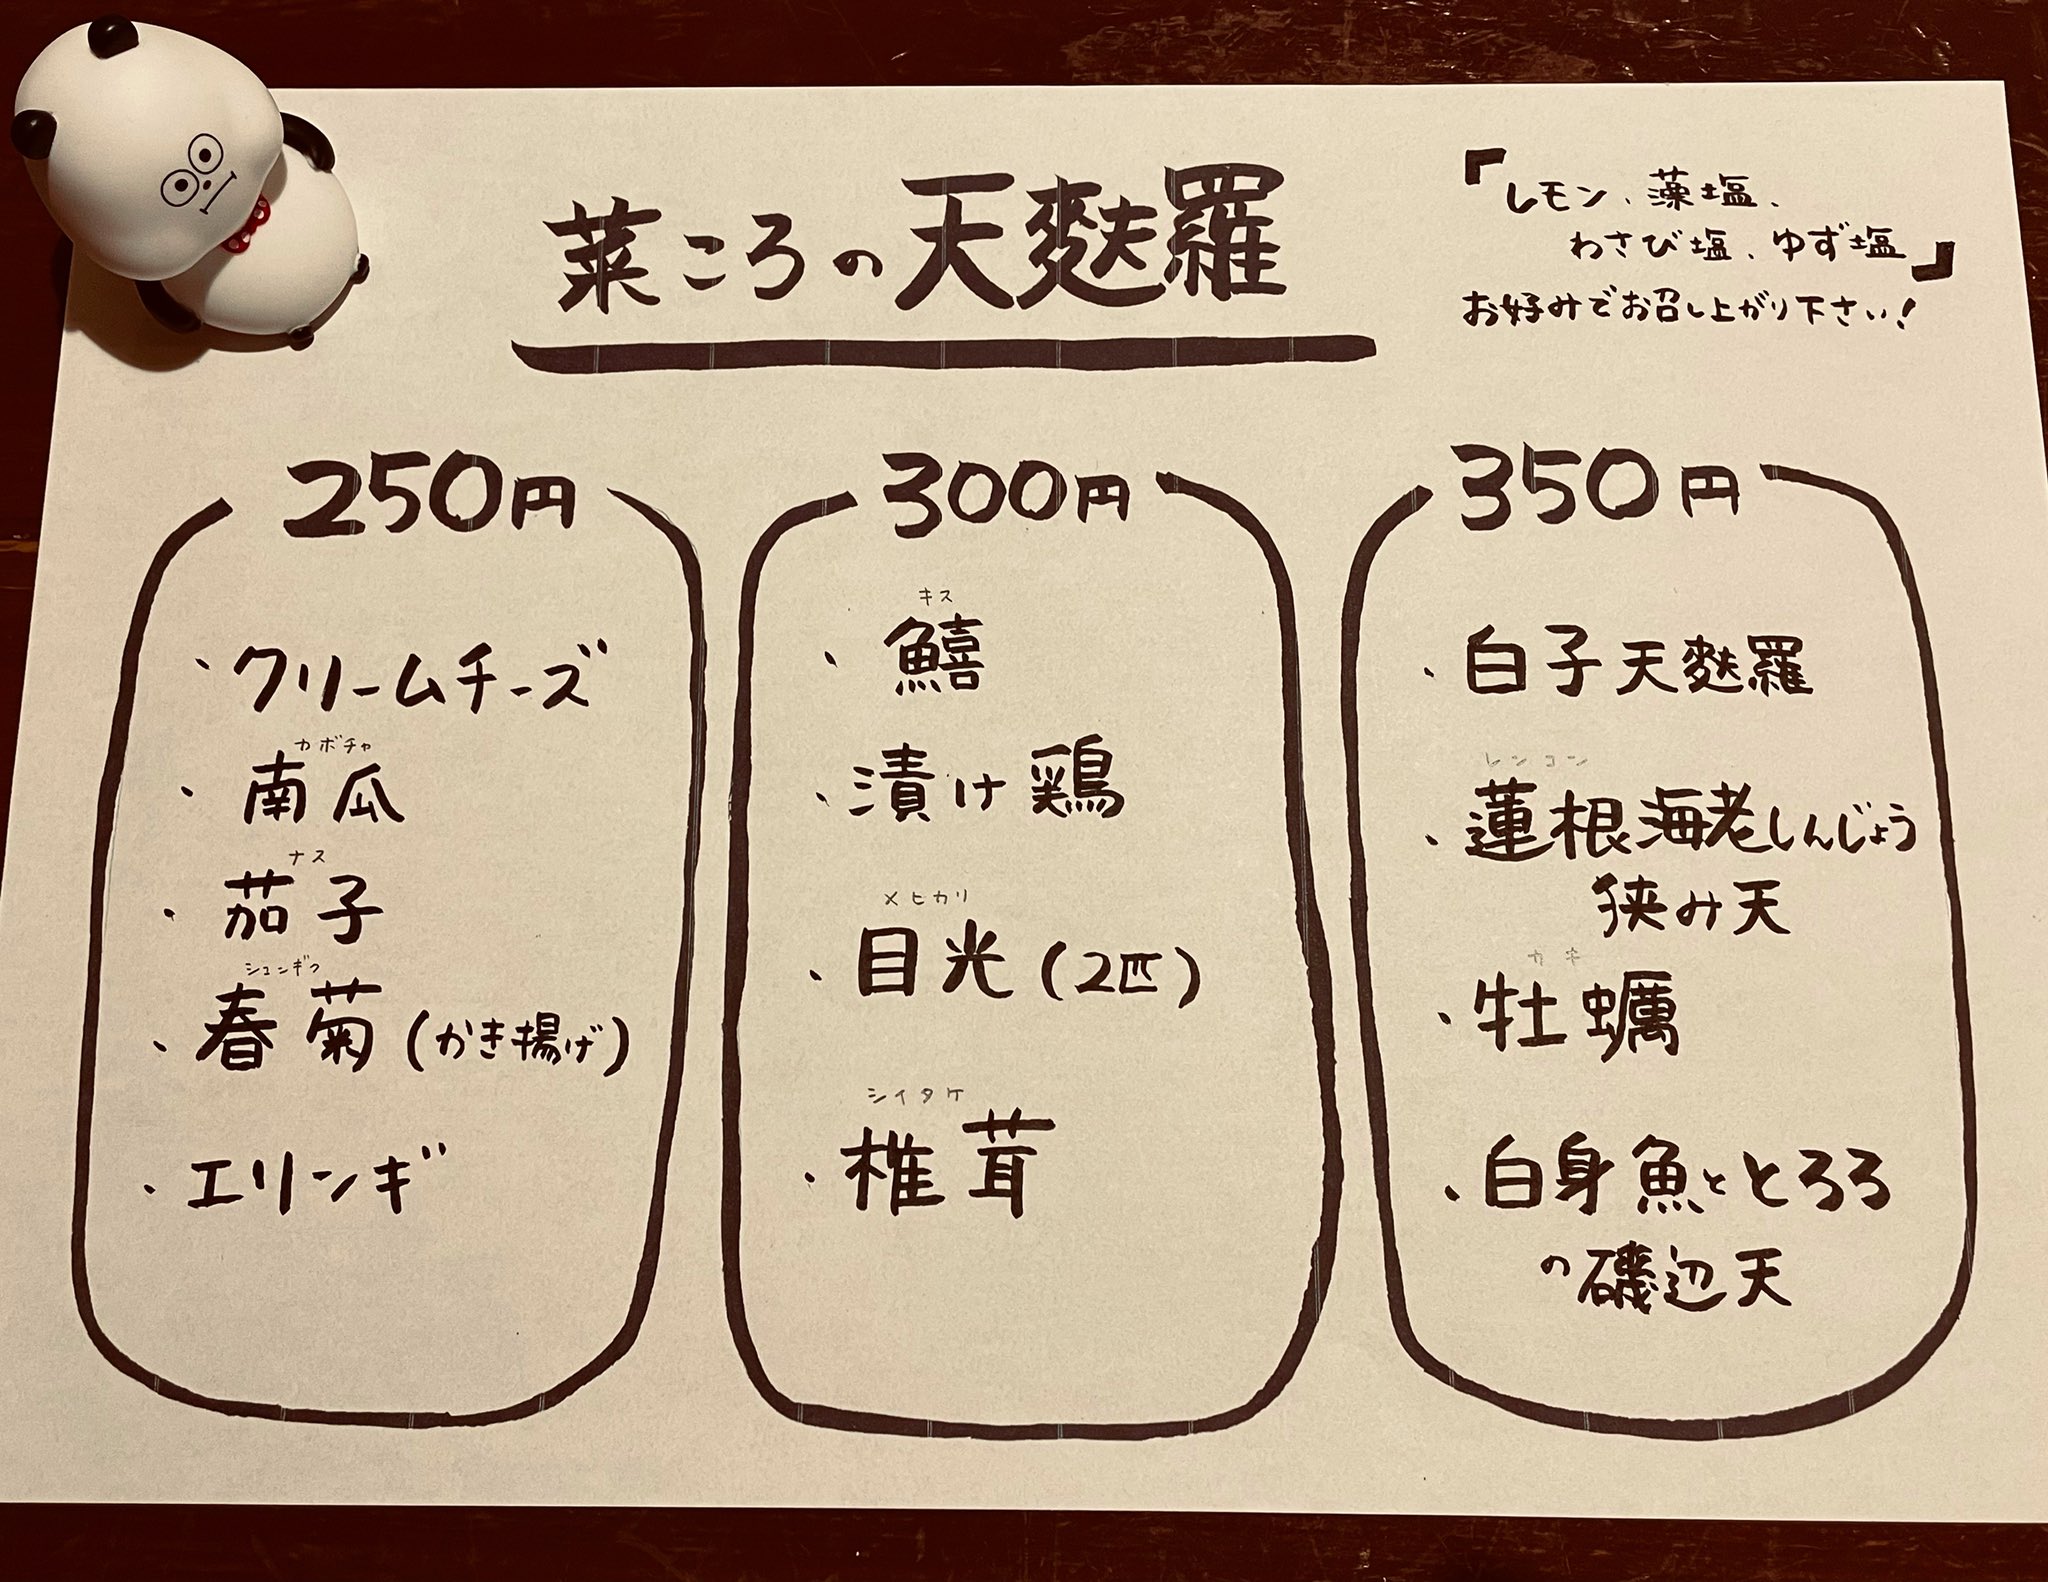 菜ころの天麩羅
『レモン、藻塩、
わさび塩、ゆず塩』
お好みでお召し上がり下さい!
250円
・クリームチーズ
カボチャ
・南瓜
ナス
・茄子
シュンギク
・春菊(かき揚げ)
・エリンギ
300円
キス
・鱚
・漬け鶏
メヒカリ
・目光(2匹)
シイタケ
・椎茸
350円
・白子天麩羅
レンコン
・蓮根海老しんじょう
挟み天
カキ
・牡蠣
・白身魚ととろろ
の磯辺天